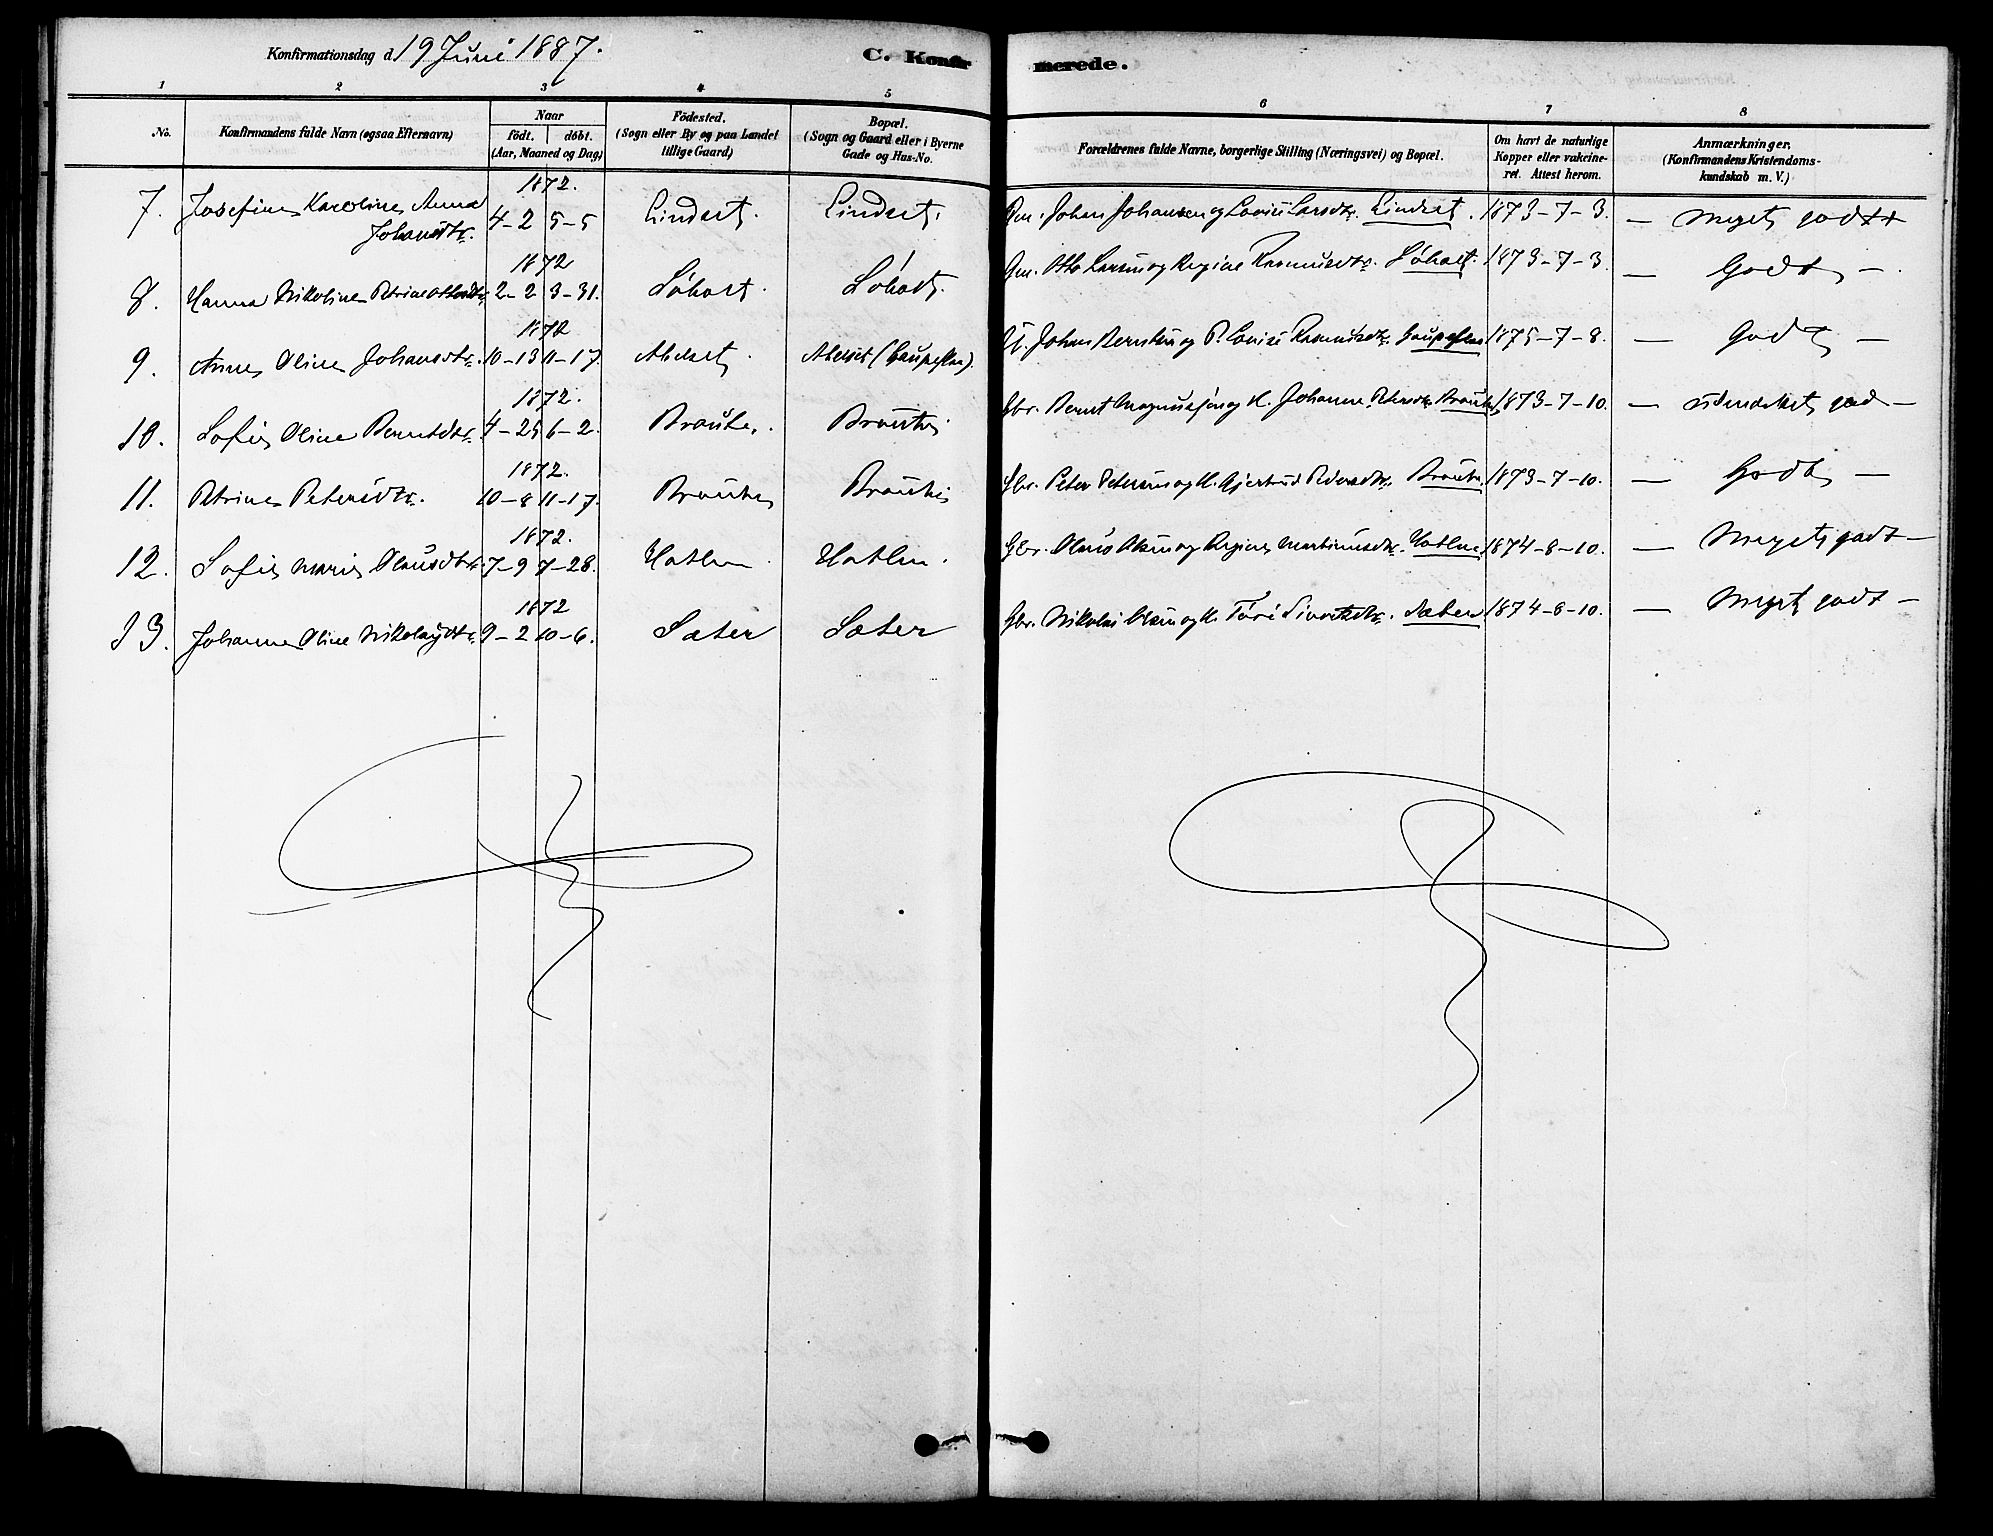 Konfirmationsdag d. 19 Juni 1887.
C. Konfirmerede.
1 2 3 4 5 6 7 8
No.
Konfirmandens fulde Navn (ogsaa Efternavn)
Naar
födt. döbt.
(Aar, Maaned og Dag)
Födested.
(Sogn eller By og paa Landet
tillige Gaard)
Bopæl.
(Sogn og Gaard eller i Byerne
Gade og Hus-No.
Forældrenes fulde Navne, borgerlige Stilling (Næringsvei) og Bopæl.
Om havt de naturlige
Kopper eller vakcine-
ret. Attest herom.
Anmærkninger.
(Konfirmandens Kristendoms-
kundskab m. V.)
1872.
7. Josefine Karoline Anna 4-2 5-5 Lindset. Lindset. Gm. Johan Johansen og Lovise Larsdtr. Lindset. 1873-7-3. — Meget godt
Johansdtr.
1872
8. Hanna Nikoline Petrine Ottosdtr. 2-2 3-31. Løhast. Løhast. Gm. Otto Larsen og Regine Rasmusdtr. Løhast. 1873-7-3. — Godt —
1872
9. Anne Oline Johansdtr. 10-13 11-17. Abelset. Abelset Johan Berntsen og Lovise Rasmusdtr. 1875-7-8. — Godt —
1872.
10. Sofie Oline Berntsdtr. 4-25 6-2. Braute. Braute Gbr. Bernt og H. Johanne Petersdtr. Braute 1873-7-10. —
1872.
11. Petrine Petersdtr. 10-8 11-17. Braute Braute Gbr. Peter Petersen og H. Gjertrud Pedersdtr. Braute 1873-7-10. — Godt —
1872.
12. Sofie Marie Olausdtr. 7-9 7-28. Hatlen Hatlen. Gbr. Olaus Olsen og Regine Martinusdtr. Hatlen 1874-8-10. — Meget godt —
1872
13. Johanne Oline Nikolaydtr. 9-2 10-6. Sæter Sæter Gbr. Nikolai Olsen og H. Sivertsdtr. Sæter 1874-8-10. — Meget godt —